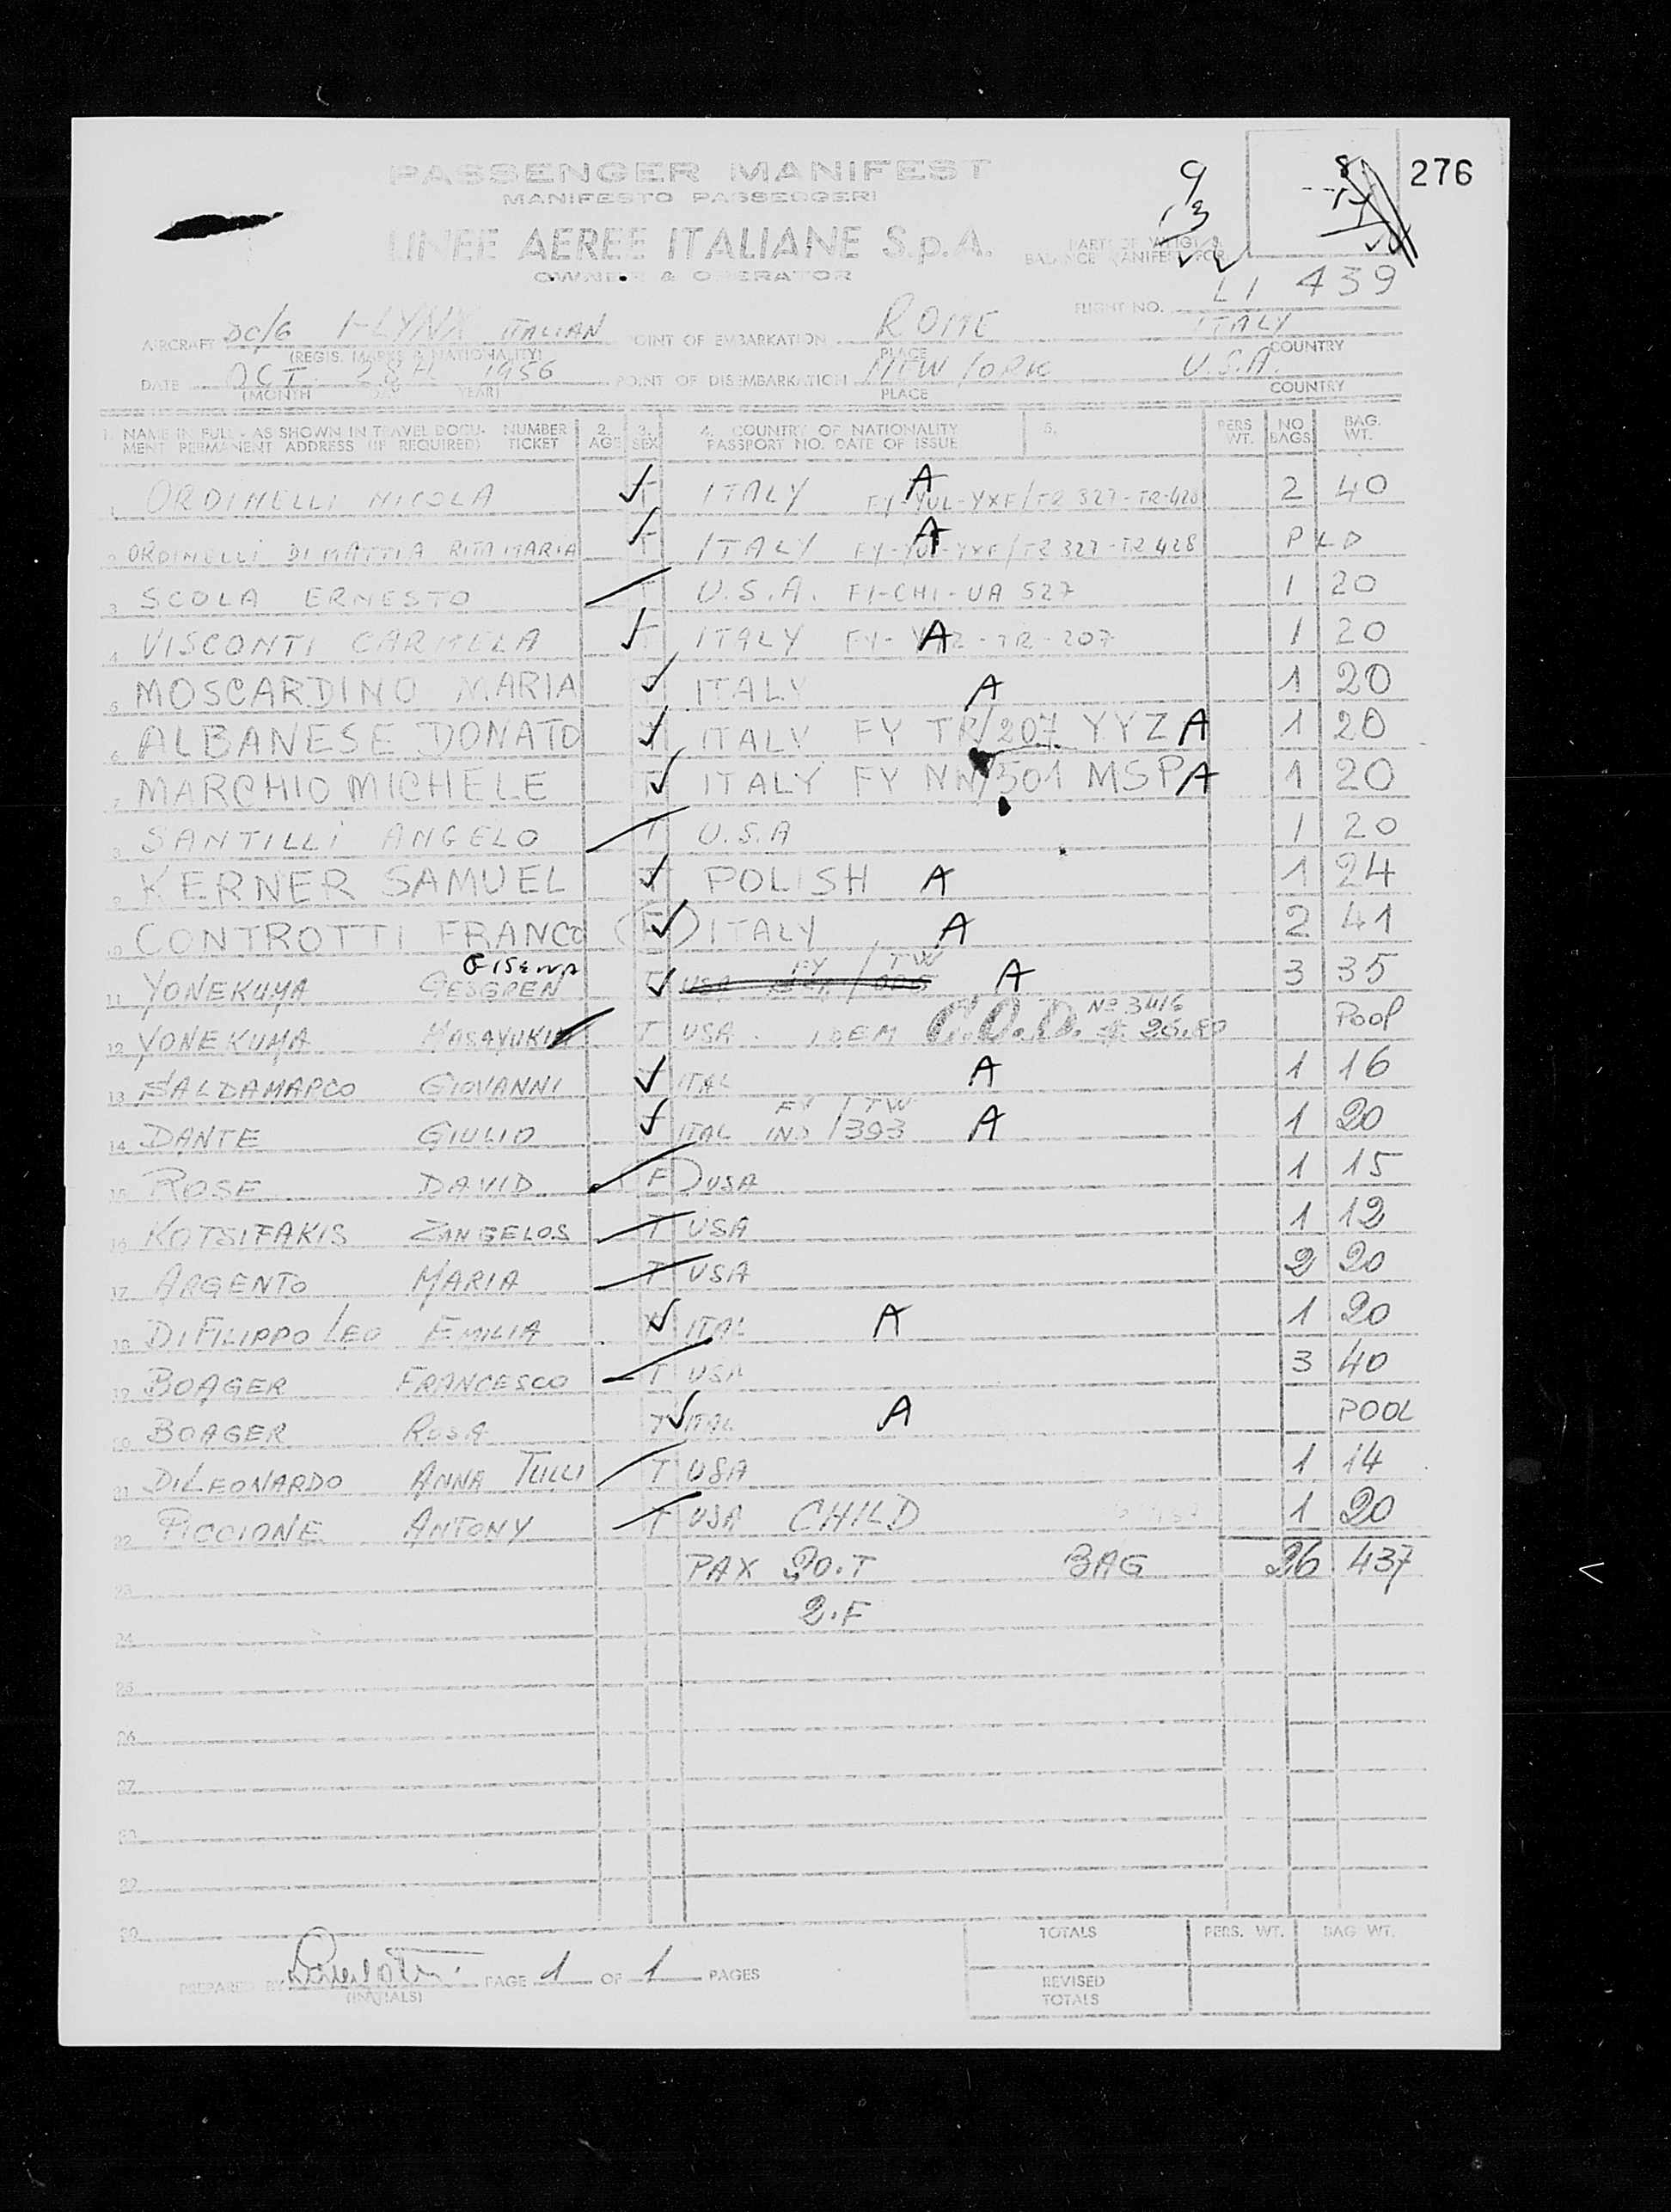 276
PASSENGER MANIFEST
MANIFESTO PASSEGGERI
9
13
8
LINEE AEREE ITALIANE S.p.A.
OWNER & OPERATOR
PART OF WEIGHT &
BALANCE MANIFEST FOR
FLIGHT NO. LI 439
AIRCRAFT DC/6 I-LYNX ITALIAN POINT OF EMBARKATION ROME ITALY
(REGIS. MARKS & NATIONALITY) PLACE COUNTRY
DATE OCT 28th 1956 POINT OF DISEMBARKATION NEW YORK U.S.A.
(MONTH DAY YEAR) PLACE COUNTRY
1. NAME IN FULL - AS SHOWN IN TRAVEL DOCU- NUMBER 2. 3. 4. COUNTRY OF NATIONALITY 5. PERS NO BAG.
MENT PERMANENT ADDRESS (IF REQUIRED) TICKET AGE SEX PASSPORT NO. DATE OF ISSUE WT. BAGS WT.
1 ORDINELLI NICOLA T ITALY A FY-YUL-YXE/TR 327-TR-428 2 40
2 ORDINELLI DI MATTIA RITA MARIA T ITALY A FY-YUL-YXE/TR 327-TR 428 P L D
3 SCOLA ERNESTO T U.S.A. FY-CHI-UA 527 1 20
4 VISCONTI CARMELA T ITALY FY-YYZ-TR-207 A 1 20
5 MOSCARDINO MARIA T ITALY A 1 20
6 ALBANESE DONATO T ITALY FY TR/207 YYZ A 1 20
7 MARCHIO MICHELE T ITALY FY NN/501 MSP A 1 20
8 SANTILLI ANGELO T U.S.A 1 20
9 KERNER SAMUEL T POLISH A 1 24
10 CONTROTTI FRANCO (F) ITALY A 2 41
11 YONEKUYA T USA FY / TW A 3 35
12 YONEKUMA MASAYUKI T USA IDEM C.O.D. No 3416 $ 26.80 Pool
13 GIOVANNI T ITAL A 1 16
14 DANTE GIULIO T ITAL FY IND / TW 393 A 1 20
15 ROSE DAVID F) USA 1 15
16 KOTSIFAKIS ZANGELOS T USA 1 12
17 ARGENTO MARIA T USA 2 20
18 DI FILIPPO LEO EMILIA ITAL A 1 20
19 BOAGER FRANCESCO T USA 3 40
20 BOAGER ROSA T ITAL A POOL
21 DI LEONARDO ANNA TULLI T USA 1 14
22 PICCIONE ANTONY T USA CHILD 1 20
23 PAX 20.T BAG 26 437
2.F
24
25
26
27
28
29
30
TOTALS PERS. WT. BAG WT.
PREPARED BY PAGE 1 OF 1 PAGES
(INITIALS)
REVISED
TOTALS